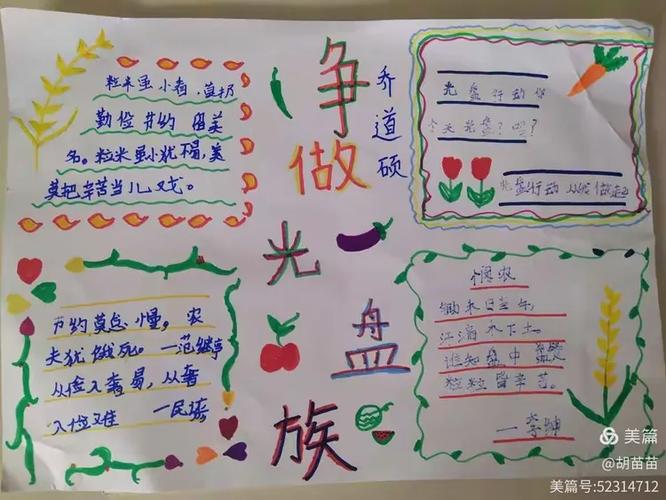 争做光盘族
乔道硕
粒米虽小君莫扔
勤俭节约留美
名。粒米虽小犹不易,美
莫把辛苦当儿戏。
光盘行动你
今天光盘了吗?
光盘行动从我做起
节约莫怠慢,农
夫犹饿死。一范继亭
从俭入奢易,从奢
入俭难 一民谚
悯农
锄禾日当午,
汗滴禾下土。
谁知盘中餐
粒粒皆辛苦。
一李绅
美篇
@胡苗苗
美篇号:52314712